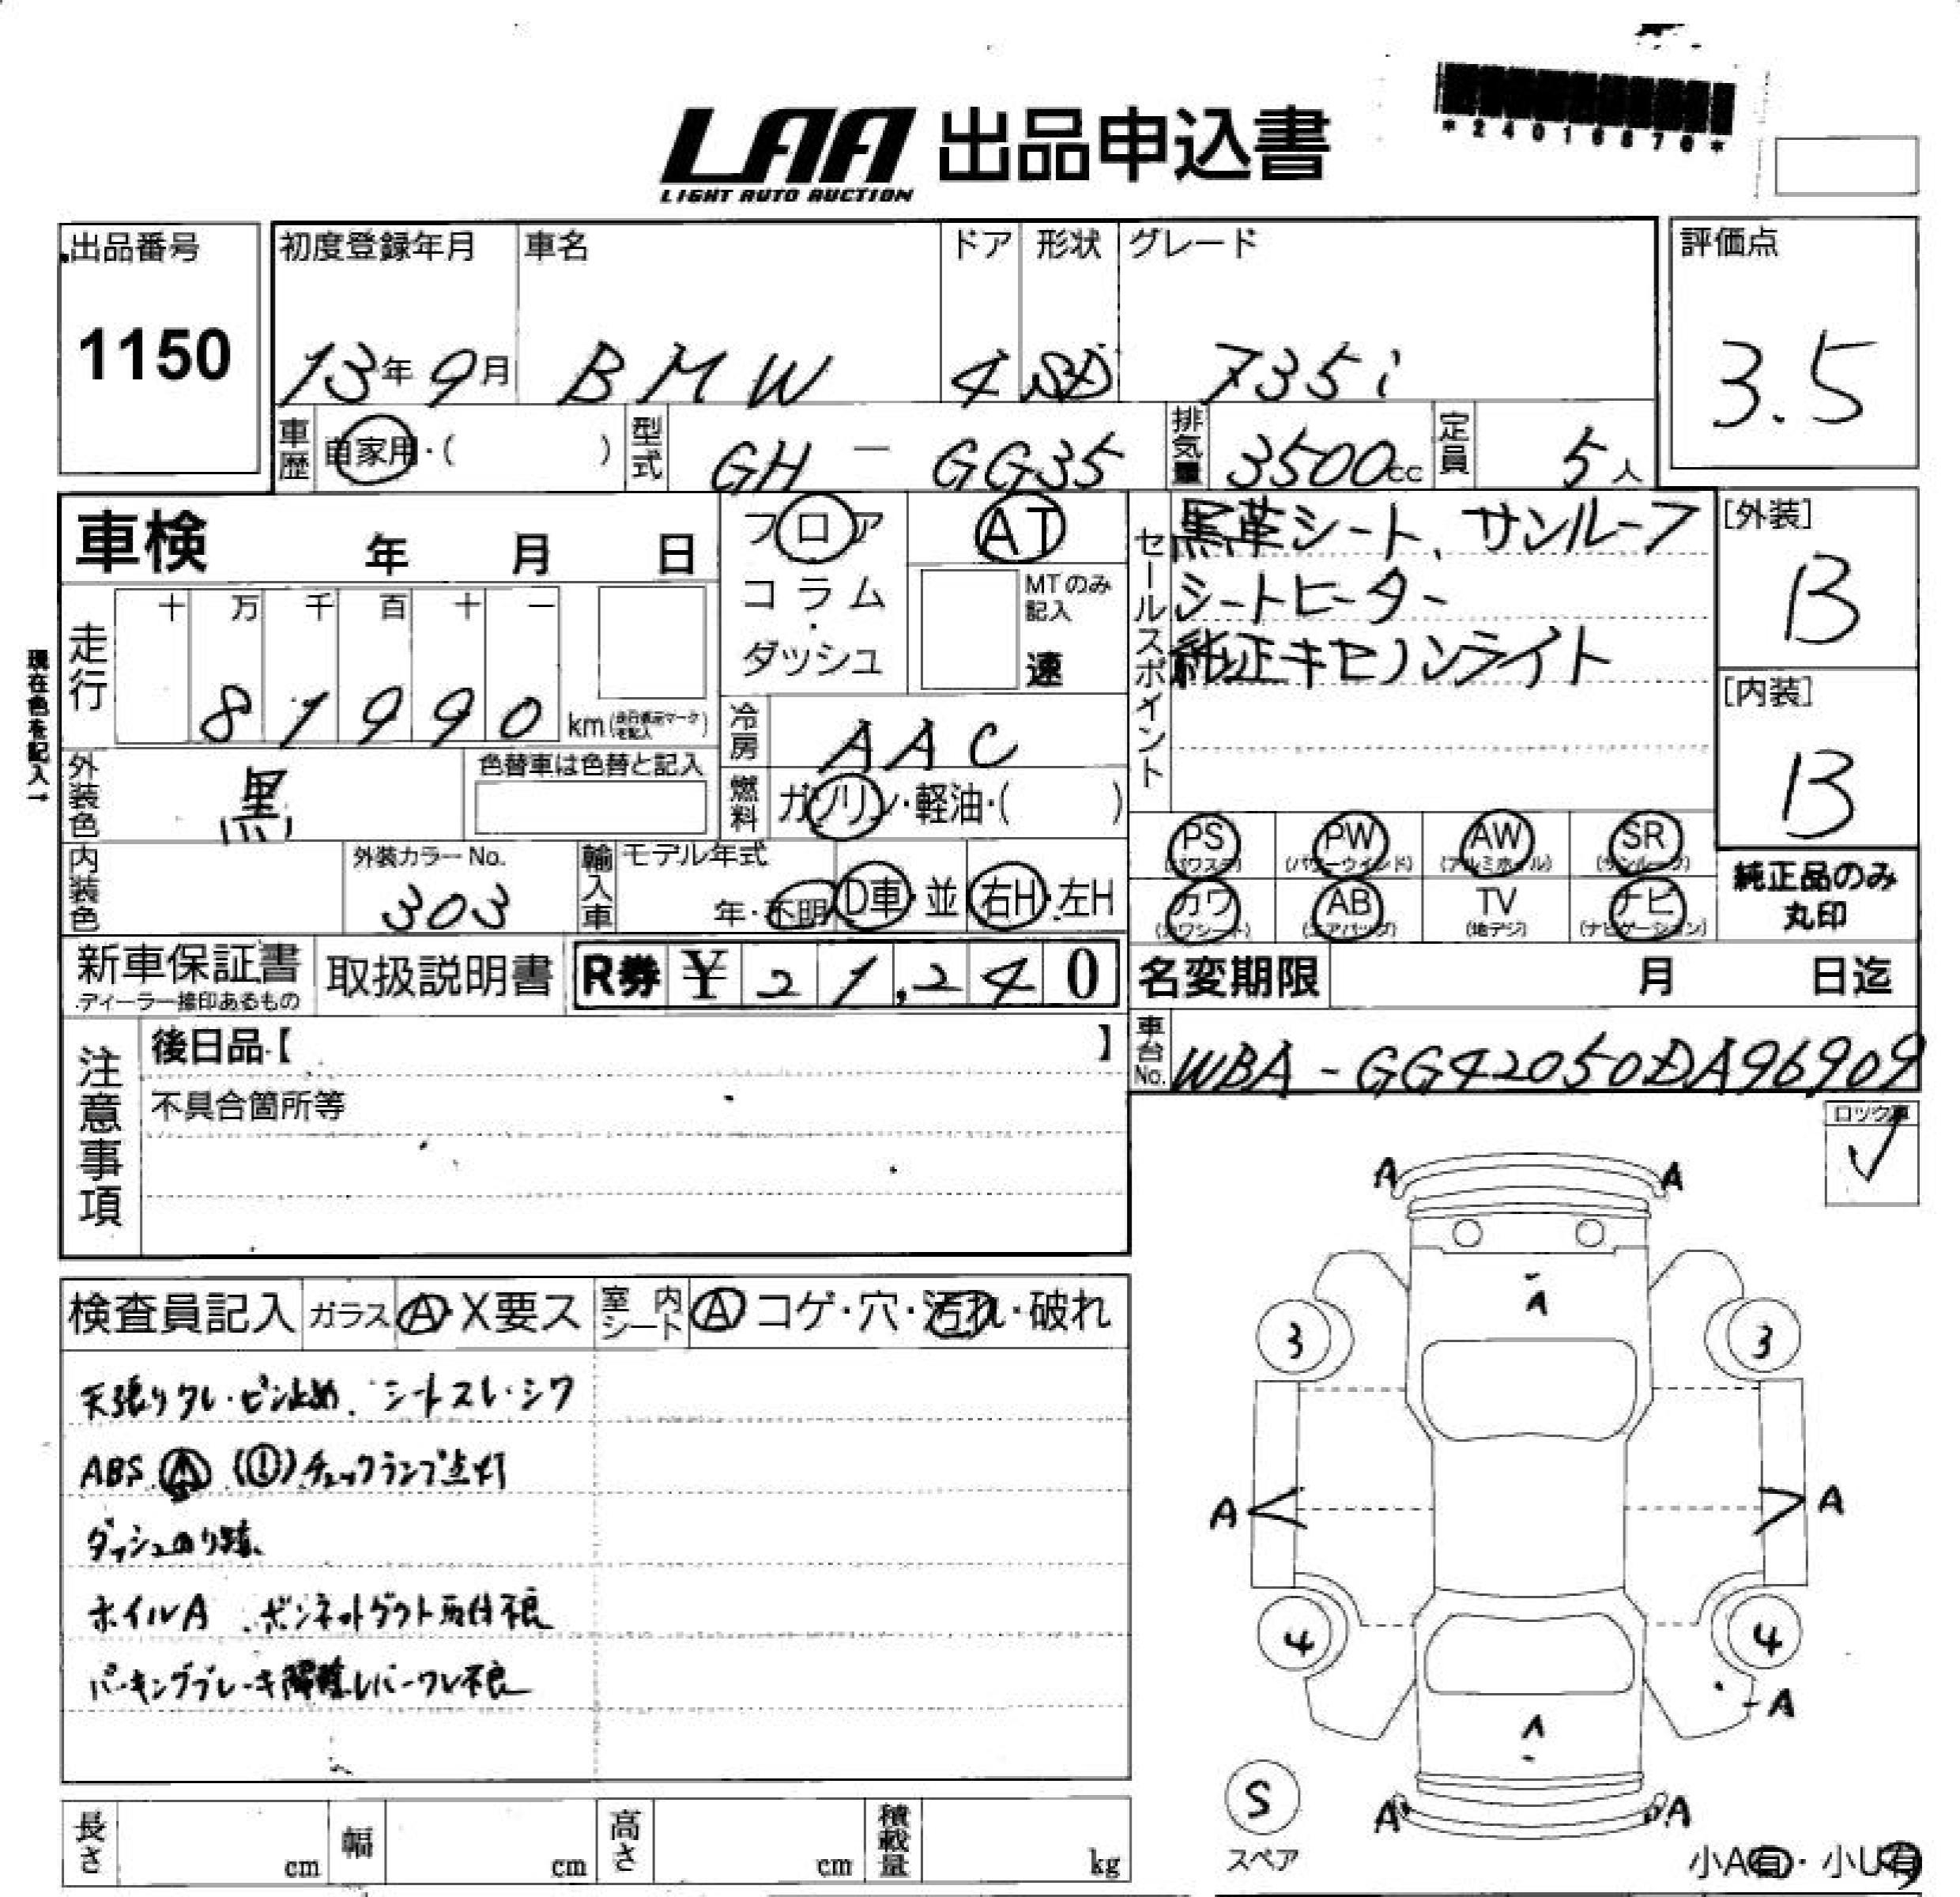 *24016870*
LAA 出品申込書
LIGHT AUTO AUCTION
出品番号 初度登録年月 車名 ドア 形状 グレード 評価点
1150 13年9月 BMW 4 SD 735i 3.5
車歴 自家用・( ) 型式 GH - GG35 排気量 3500cc 定員 5人
車検 年 月 日 フロア AT
コラム・ダッシュ MTのみ記入 速
セールスポイント
黒革シート、サンルーフ
シートヒーター
純正キセノンライト
[外装]
B
[内装]
B
現在色を記入→
走行 十 万 千 百 十 一
81990 km
冷房 AAC
外装色 黒 色替車は色替と記入
燃料 ガソリン・軽油・( )
PS PW AW SR
(パワステ) (パワーウインド) (アルミホイル) (サンルーフ)
カワ AB TV ナビ
(カワシート) (エアバッグ) (地デジ) (ナビゲーション)
純正品のみ
丸印
内装色 外装カラーNo. 303 輸入車 モデル年式 年・不明 D車・並 右H・左H
新車保証書 取扱説明書 R券 ¥21,240 名変期限 月 日迄
ディーラー捺印あるもの
注意事項 後日品【 】
不具合箇所等
車台No. WBA-GG42050DA96909
ロック車
✓
検査員記入 ガラス A・X要ス 室内シート A コゲ・穴・汚れ・破れ
天張りタレ・ピン止め、シートスレ・シワ
ABS (!) チェックランプ点灯
ダッシュのり跡
ホイルA、ボンネットダクト取付不良
パーキングブレーキ解除レバーワレ不良
A A
A
3 3
A A
4 4
A
A
S
スペア
A A
小A有・小U有
長さ cm 幅 cm 高さ cm 積載量 kg